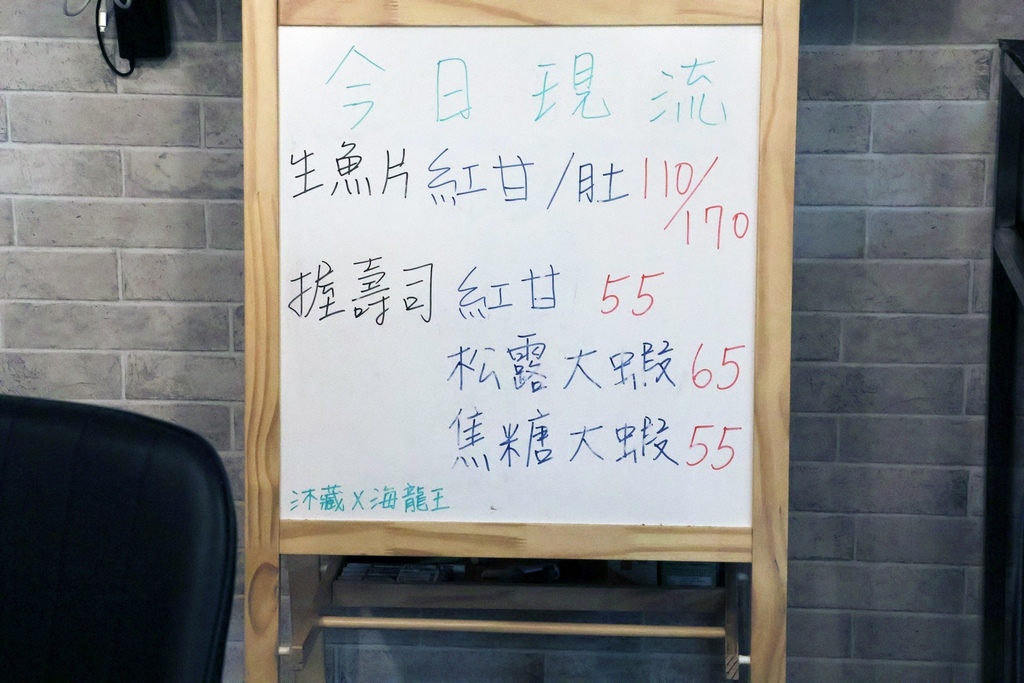 今日現流
生魚片 紅甘/肚 110/170
握壽司 紅甘 55
松露大蝦 65
焦糖大蝦 55
沐藏X海龍王